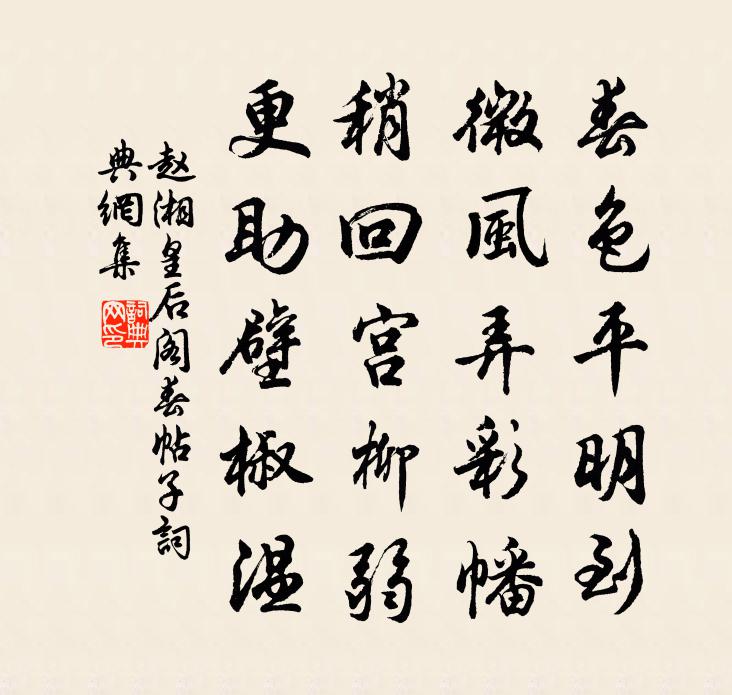 春色平明到
微風弄彩幡
稍回宫柳弱
更助壁椒温
赵湘皇后阁春帖子詞
典網集
詞典網印